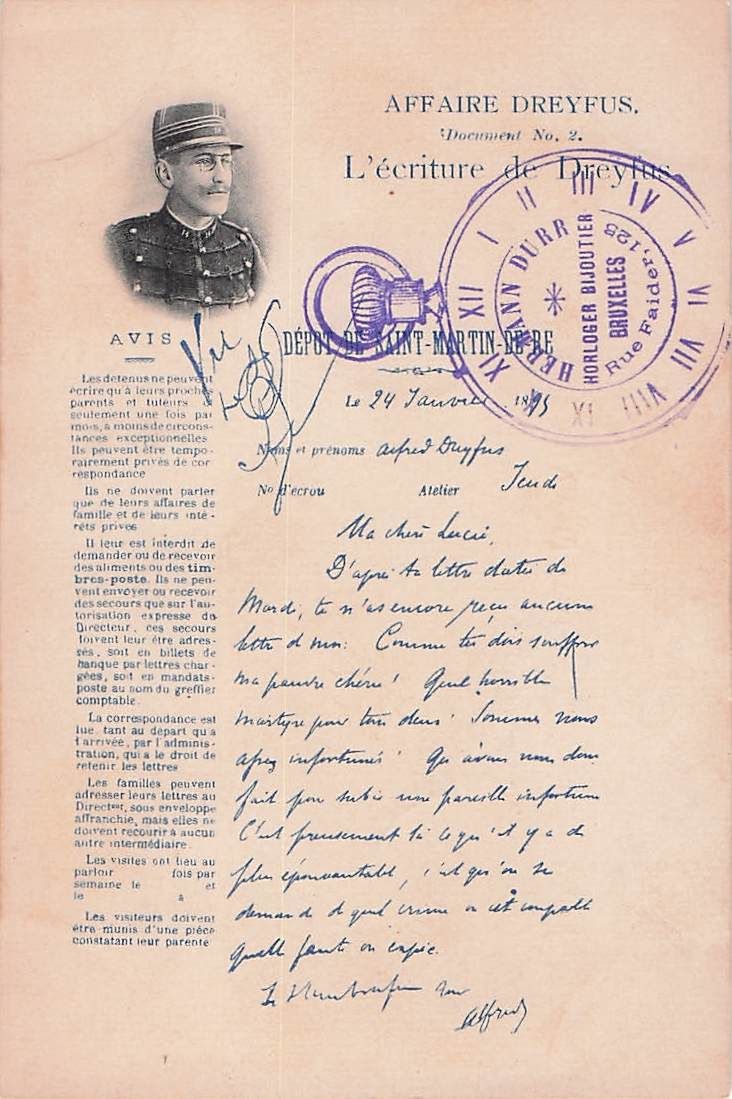 AFFAIRE DREYFUS.
Document No. 2.
L'écriture de Dreyfus
HERMANN DURR
HORLOGER BIJOUTIER
BRUXELLES
Rue Faider, 125
I II III IV V VI VII VIII IX X XI XII
Vu
DÉPOT DE SAINT-MARTIN-DE-RÉ
Le 24 Janvier 1895
Noms et prénoms Alfred Dreyfus
No d'écrou Atelier Jeudi
AVIS
Les détenus ne peuvent
écrire qu'à leurs proches
parents et tuteurs et
seulement une fois par
mois, à moins de circons-
tances exceptionnelles
Ils peuvent être tempo-
rairement privés de cor
respondance
Ils ne doivent parler
que de leurs affaires de
famille et de leurs inté-
rêts privés
Il leur est interdit de
demander ou de recevoir
des aliments ou des timbres-poste. Ils ne peu-
vent envoyer ou recevoir
des secours que sur l'au-
torisation expresse du
Directeur, ces secours
doivent leur être adres-
sés, soit en billets de
banque par lettres char-
gées, soit en mandats-
poste au nom du greffier
comptable.
La correspondance est
lue tant au départ qu'à
l'arrivée, par l'adminis-
tration, qui a le droit de
retenir les lettres
Les familles peuvent
adresser leurs lettres au
Directeur, sous enveloppe
affranchie, mais elles ne
doivent recourir à aucun
autre intermédiaire.
Les visites ont lieu au
parloir fois par
semaine le et
le à
Les visiteurs doivent
être munis d'une pièce
constatant leur parenté
Ma chère Lucie,
D'après ta lettre datée de
Mardi, tu n'as encore reçu aucune
lettre de moi. Comme tu dois souffrir
ma pauvre chérie! Quel horrible
martyre pour tous deux! Sommes nous
assez infortunés! Qu'avons nous donc
fait pour subir une pareille infortune
C'est précisément là ce qu'il y a de
plus épouvantable, c'est qu'on se
demande de quel crime on est coupable
quelle faute on expie.
Alfred